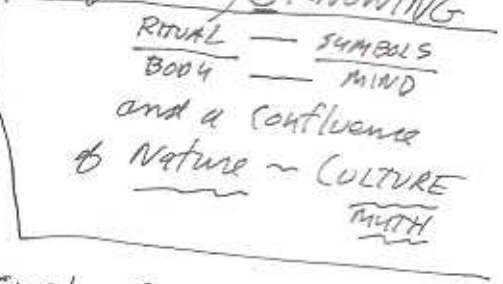 KNOWING
RITUAL — SYMBOLS
BODY — MIND
and a Confluence
of Nature ~ CULTURE
MYTH